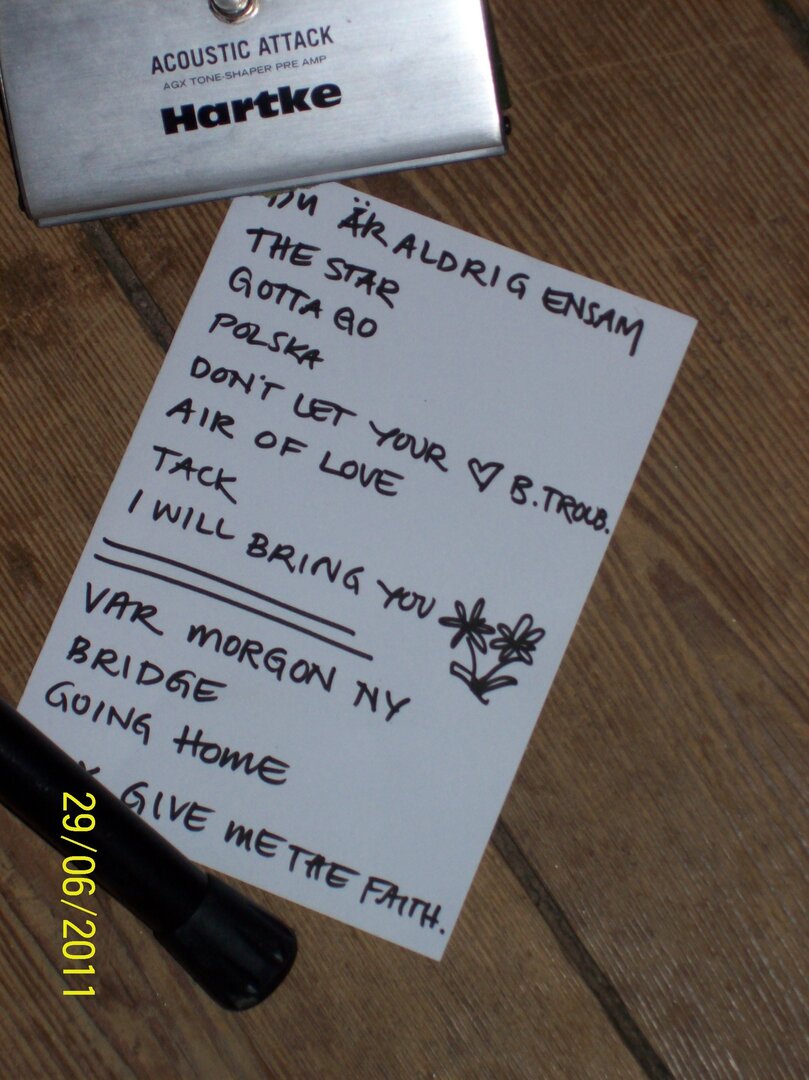 ACOUSTIC ATTACK
AGX TONE-SHAPER PRE AMP
Hartke
DU ÄR ALDRIG ENSAM
THE STAR
GOTTA GO
POLSKA
DON'T LET YOUR ♡ B. TROUB.
AIR OF LOVE
TACK
I WILL BRING YOU
VAR MORGON NY
BRIDGE
GOING HOME
GIVE ME THE FAITH.
29/06/2011